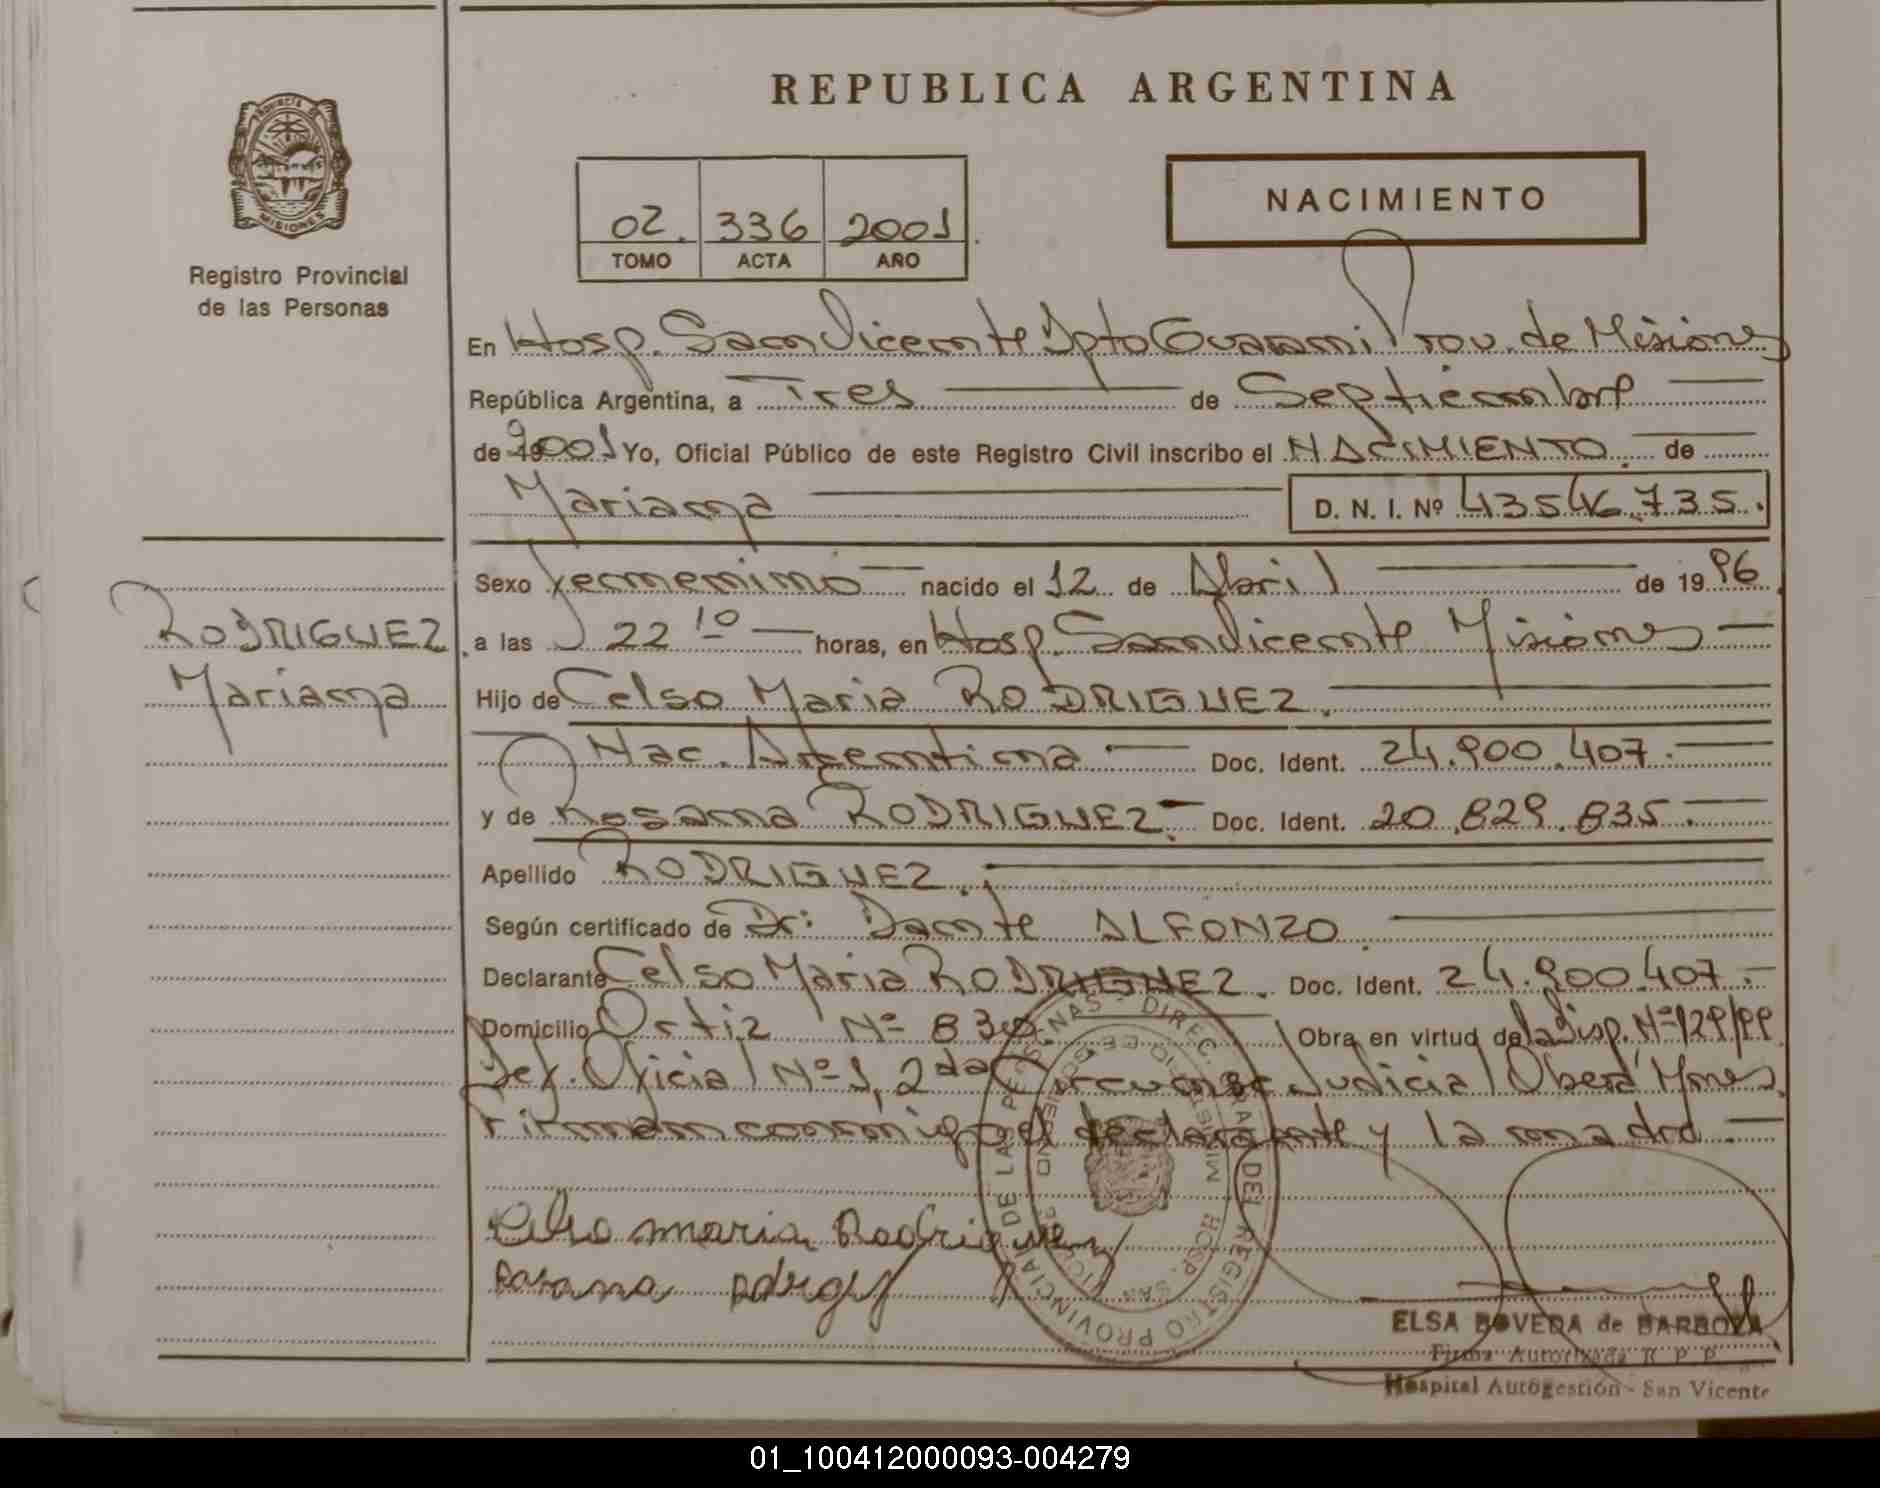 REPUBLICA ARGENTINA
PROVINCIA DE
MISIONES
Registro Provincial
de las Personas
02. 336 2001
TOMO ACTA AÑO
NACIMIENTO
En Hosp. San Vicente Dpto Guarani Prov. de Misiones
República Argentina, a Tres de Septiembre
de 2001 Yo, Oficial Público de este Registro Civil inscribo el NACIMIENTO de
Mariana D. N. I. Nº 43546.735.
Sexo femenino nacido el 12 de Abril de 1996
RODRIGUEZ
Mariana
a las 22 10 horas, en Hosp. San Vicente Misiones
Hijo de Celso Maria RODRIGUEZ.
Nac. Argentina Doc. Ident. 24.900.407.
y de Rosana RODRIGUEZ Doc. Ident. 20.829.835.
Apellido RODRIGUEZ.
Según certificado de Dr: Dante ALFONZO
Declarante Celso Maria RODRIGUEZ. Doc. Ident. 24.900.407.
Domicilio Ortiz Nº 830 Obra en virtud de la Disp. Nº 129/99
Def. Oficial Nº 1, 2da Circunsc Judicial Oberá Mnes.
Firman conmigo el declarante y la madre.
Celso maria Rodriguez
Rosana
DIREC. GRAL DEL REGISTRO PROVINCIAL DE LAS PERSONAS
MINISTERIO DE GOBIERNO
HOSP. SAN VICENTE
ELSA BOVEDA de BARBOZA
Firma Autorizada R P P
Hospital Autogestión - San Vicente
01_100412000093-004279